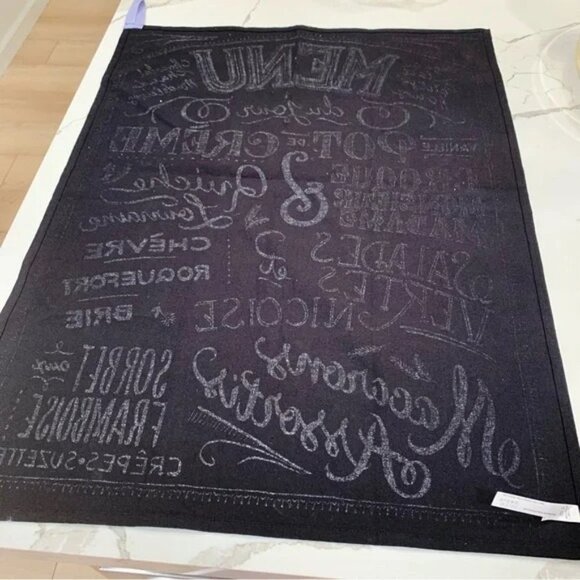 MENU
du jour
VANILLE POT DE CRÈME
CROQUE
MONSIEUR
MADAME
&
Quiche
Lorraine
SALADES
VERTES
et
NICOISE
CHÈVRE
ROQUEFORT
BRIE
Macarons
Assortis
SORBET
aux
FRAMBOISE
CRÊPES • SUZETTE